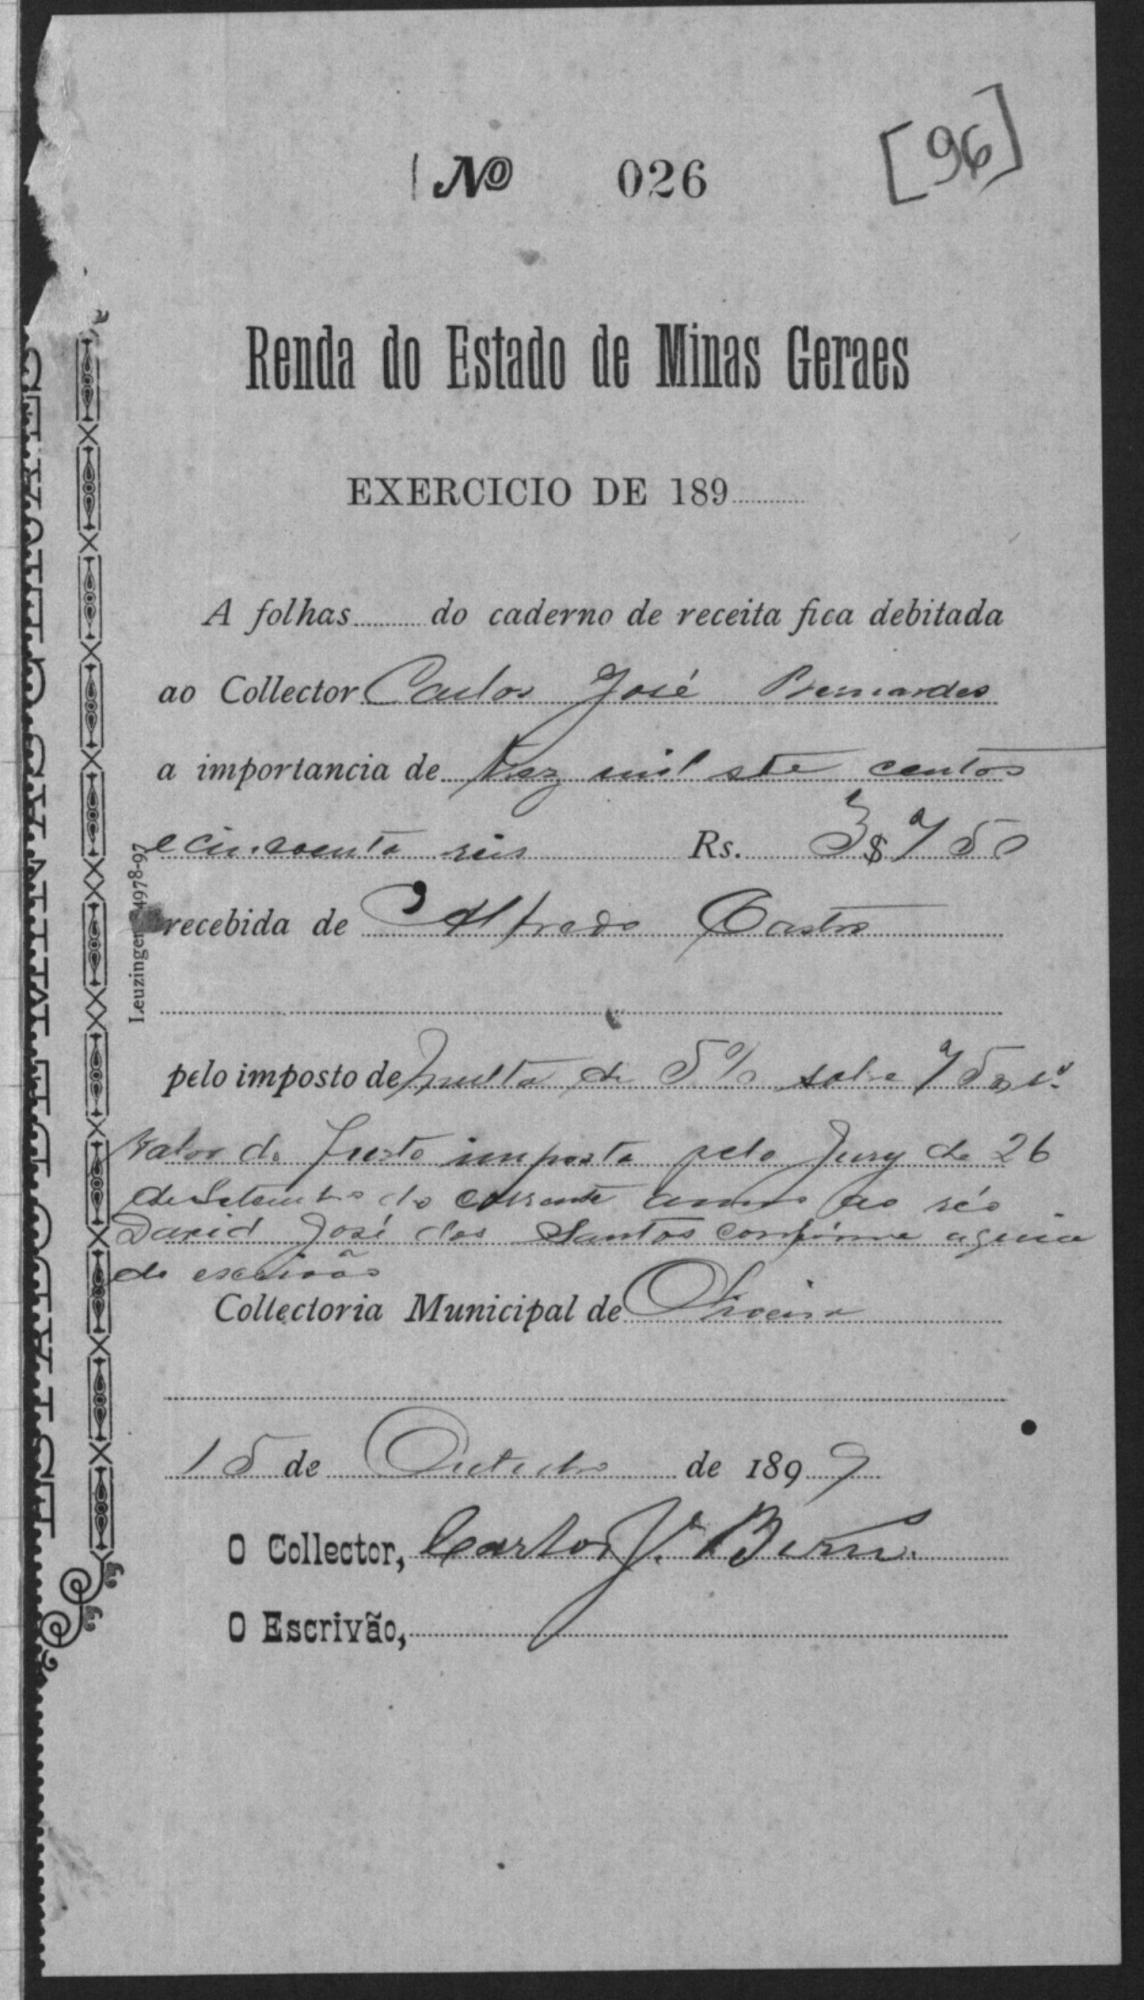 Nº 026
[96]
Renda do Estado de Minas Geraes
EXERCICIO DE 189
A folhas do caderno de receita fica debitada
ao Collector Carlos José Bernardes
a importancia de trez mil sete centos
e cincoenta reis Rs. 3$750
recebida de Alfredo Castro
pelo imposto de multa de 5% sobre 75
valor do furto imposta pelo Jury de 26
de Setembro do corrente anno ao réo
David José dos Santos conforme a guia
do escrivão
Collectoria Municipal de Oliveira
15 de Outubro de 1899
O Collector, Carlos J. Bern.
O Escrivão,
Leuzinger 4978-97